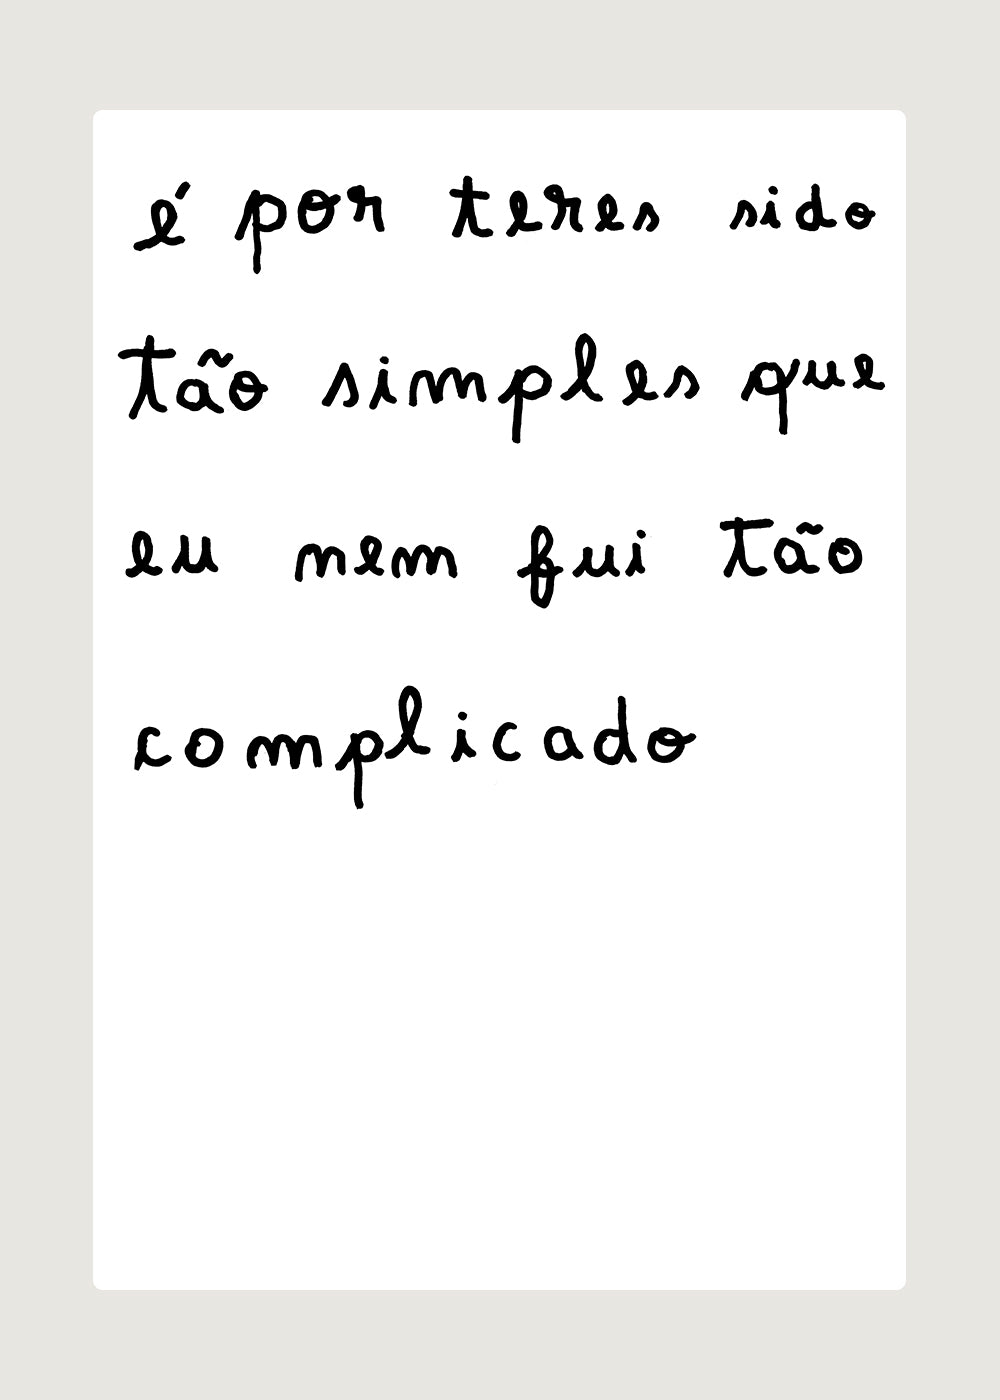 é por teres sido
tão simples que
eu nem fui tão
complicado